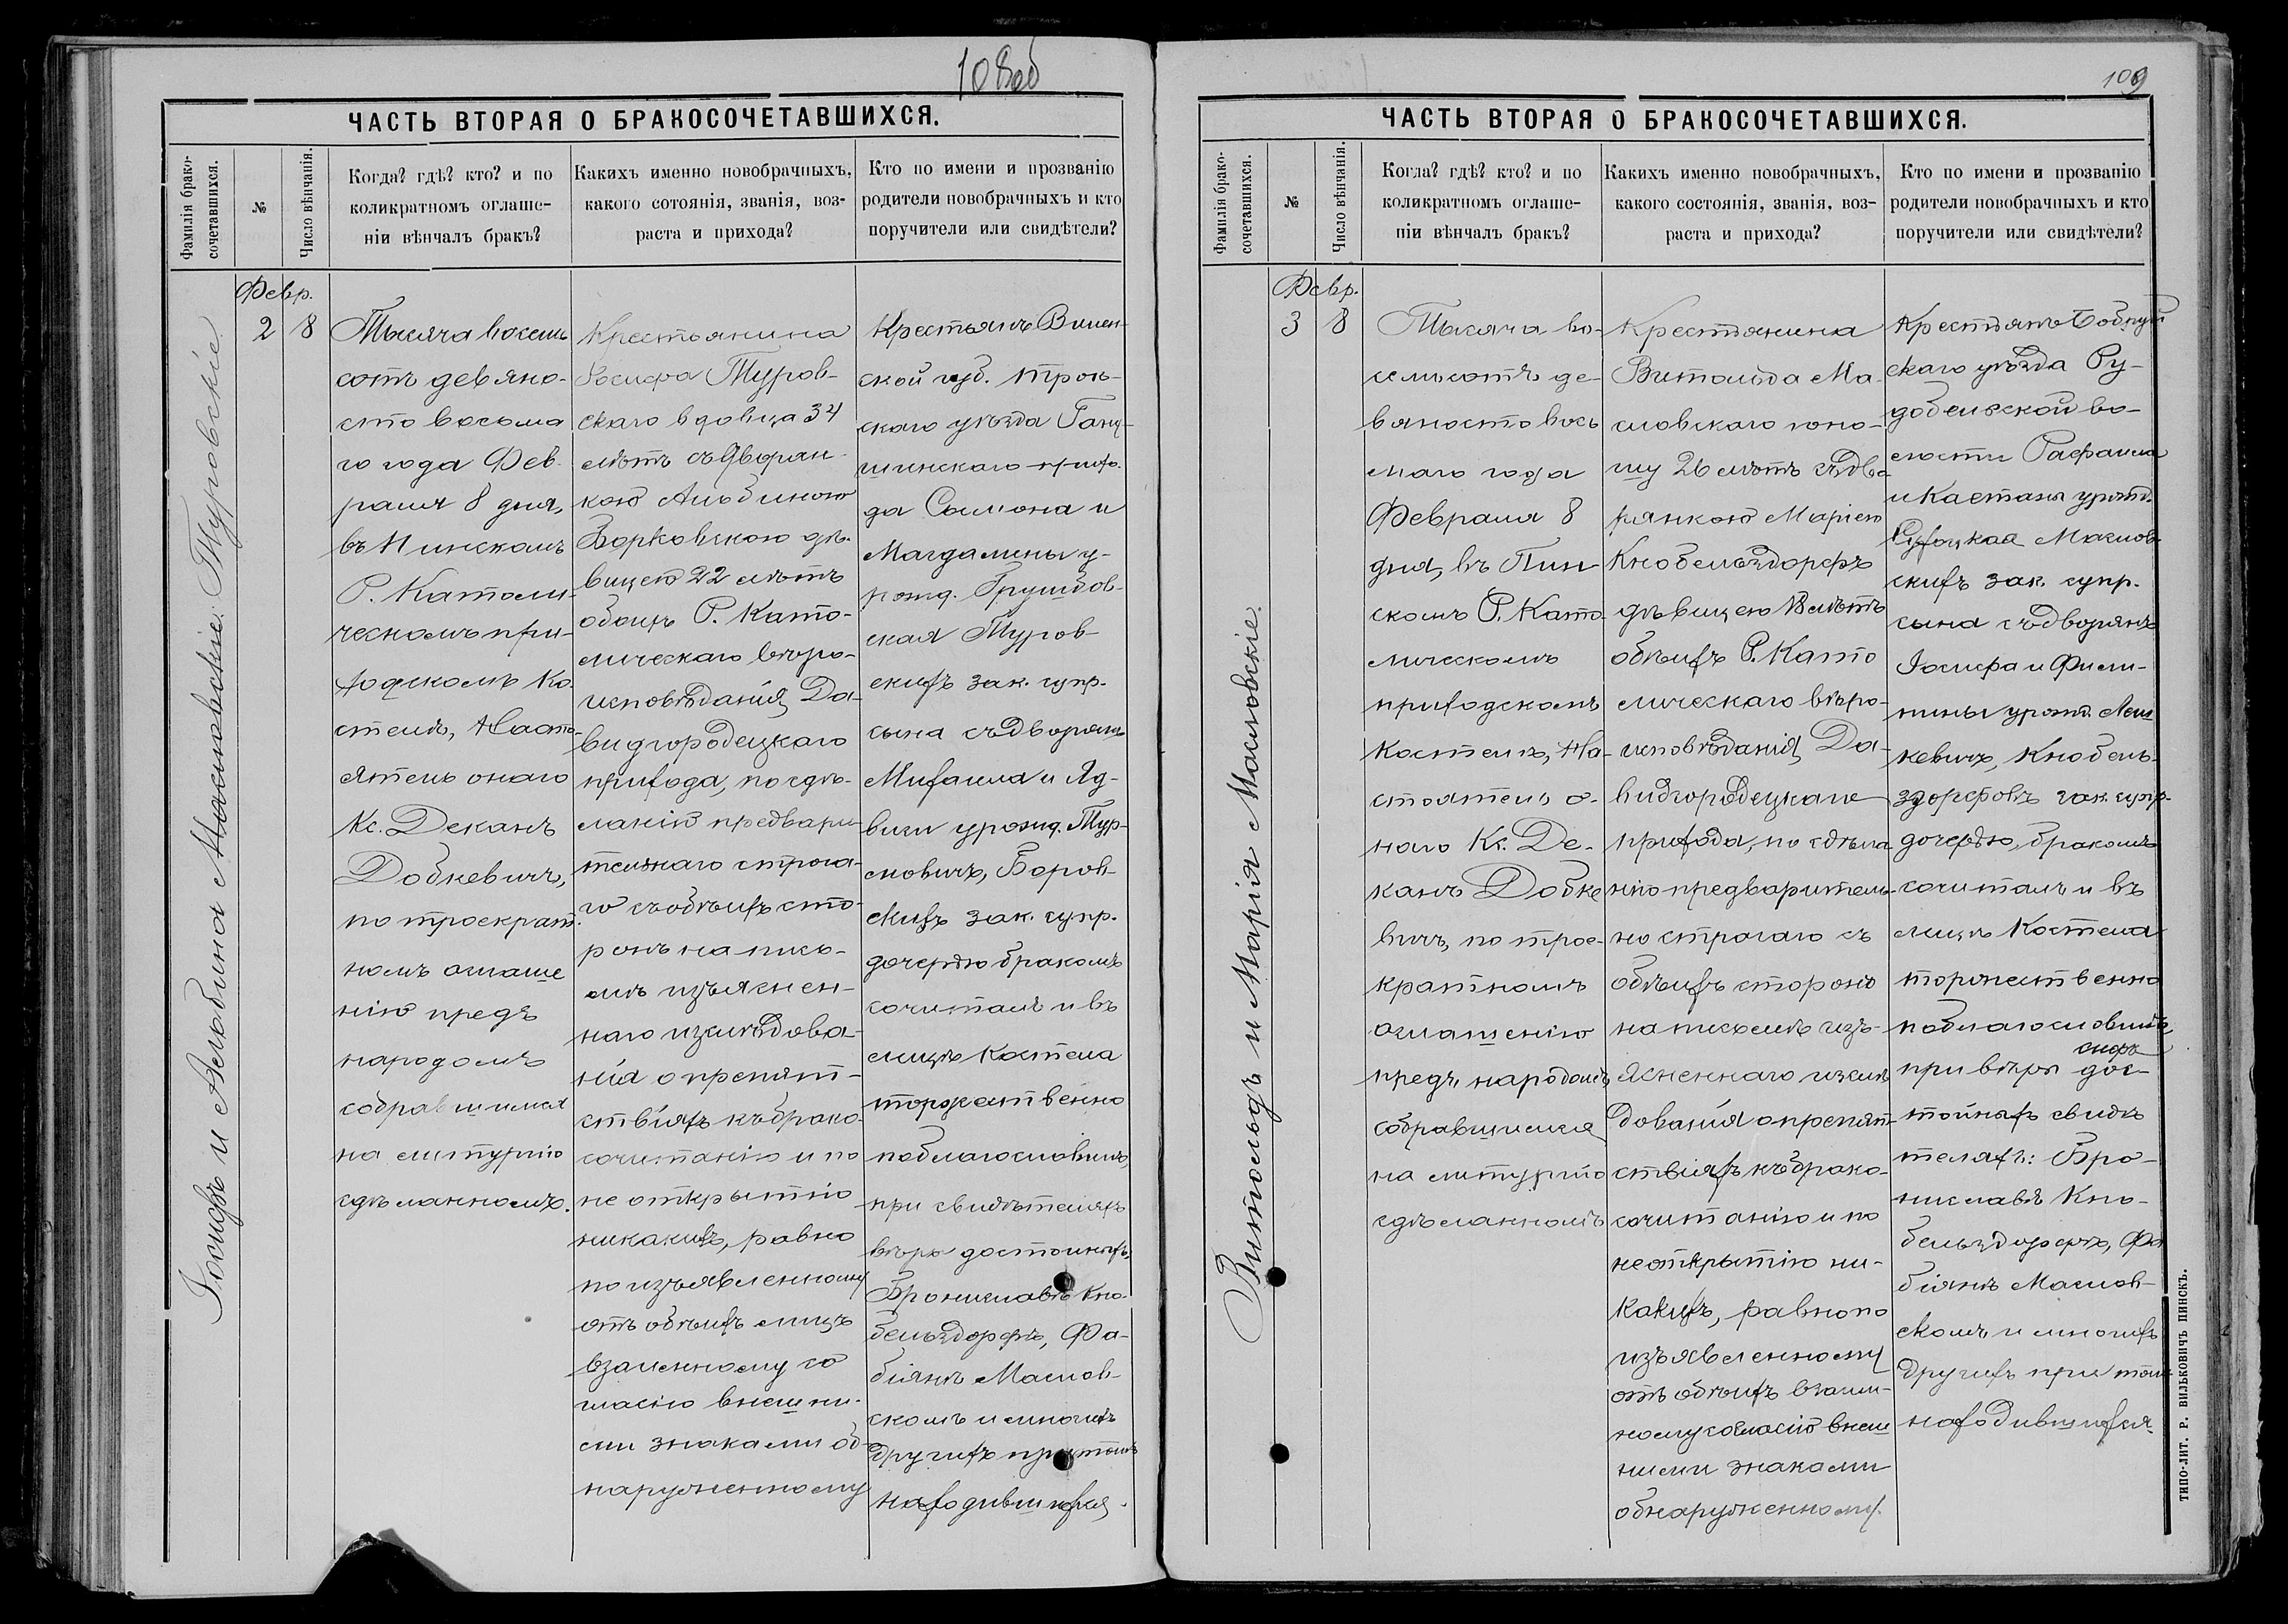 108об
ЧАСТЬ ВТОРАЯ О БРАКОСОЧЕТАВШИХСЯ.
Фамилія брако-
сочетавшихся.
№
Число вѣнчанія.
Когда? гдѣ? кто? и по
коликратномъ оглаше-
ніи вѣнчалъ бракъ?
Какихъ именно новобрачныхъ,
какого сотоянія, званія, воз-
раста и прихода?
Кто по имени и прозванію
родители новобрачныхъ и кто
поручители или свидѣтели?
Іосифъ и Альбина Масловскіе. Туровскіе
Февр.
2 8
Тысяча восемь
сотъ девяно-
сто восьма
го года Фев-
раля 8 дня,
въ Пинскомъ
Р. Католи-
ческомъ при-
ходскомъ Ко-
стелѣ, Насто-
ятель онаго
Кс. Деканъ
Добкевичъ,
по троекрат-
номъ оглаше
нію предъ
народомъ
собравшимся
на литургію
сдѣланномъ.
Крестьянина
Іосифа Туров-
скаго вдовца 34
лѣтъ съ Дворян-
кою Альбиною
Борковскою дѣ-
вицею 22 лѣтъ
обоихъ Р. Като-
лическаго вѣро-
исповѣданія Да-
видгородецкаго
прихода, по сдѣ-
ланію предвари-
тельнаго строга-
го съ обѣихъ сто-
ронъ на пись-
мѣ изъяснен-
наго изслѣдова-
нія о препят-
ствіяхъ къ брако-
сочитанію и по
не открытію
никакихъ, равно
по изъявленному
отъ обѣихъ лицъ
взаимному со
гласію внешни-
ми знаками об-
наруженному
Крестьянъ Вилен-
ской губ. Трок-
скаго уѣзда Гану-
шинскаго прихо-
да Симона и
Магдалины у-
рожд. Грушбов-
ская Туров-
скихъ зак. супр.
сына съ Дворянъ
Михаила и Яд-
виги урожд. Тур-
новичъ, Борков-
скихъ зак. супр.
дочерью бракомъ
сочиталъ и въ
лицѣ Костела
торжественно
поблагословилъ,
при свидѣтеляхъ
вѣры достойныхъ,
Брониславѣ Кно-
бельздорфъ, Фа-
біянѣ Маслов-
скомъ и многихъ
другихъ при томъ
находившихся.
109
ЧАСТЬ ВТОРАЯ О БРАКОСОЧЕТАВШИХСЯ.
Фамилія брако-
сочетавшихся.
№
Число вѣнчанія.
Когда? гдѣ? кто? и по
коликратномъ оглаше-
ніи вѣнчалъ бракъ?
Какихъ именно новобрачныхъ,
какого состоянія, званія, воз-
раста и прихода?
Кто по имени и прозванію
родители новобрачныхъ и кто
поручители или свидѣтели?
Витольдъ и Марія Масловскіе.
Февр.
3 8
Тысяча во-
семьсотъ де-
вяносто вось
маго года
Февраля 8
дня, въ Пин
скомъ Р. Като-
лическомъ
приходскомъ
Костелѣ, На-
стоятель о-
наго Кс. Де-
канъ Добке
вичъ, по трое-
кратномъ
оглашенію
предъ народомъ
собравшимся
на литургію
сдѣланномъ
Крестянина
Витольда Ма-
словскаго юно-
шу 26 лѣтъ съ Дво-
рянкою Маріею
Кнобельздорфъ
дѣвицею 18 лѣтъ
обѣихъ Р. Като
лическаго вѣро-
исповѣданія Да-
видгородецкаго
прихода, по сдѣла-
нію предваритель-
но строгаго съ
обѣихъ сторонъ
на письмѣ изъ-
ясненнаго изслѣ
дованія о препят-
ствіяхъ къ брако-
сочитанію и по
неоткрытію ни-
какихъ, равно по
изъявленному
отъ обѣихъ взаим-
ному согласію внеш
ними знаками
обнаруженному.
Крестянъ Бобруй
скаго уѣзда Ру-
добельской во-
лости Рафаила
и Каетаны урожд.
Маслов-
скихъ зак. супр.
сына съ дворянъ
Іосифа и Фили-
пины урожд. Лем
кевичъ, Кнобель-
здорфовъ зак. супр.
дочерью, бракомъ
сочиталъ и въ
лицѣ Костела
торжественно
поблагословилъ
при вѣры дос-
тойныхъ свидѣ
теляхъ: Бро-
ниславѣ Кно-
бельздорфъ, Фа
біянѣ Маслов-
скомъ и многихъ
другихъ при томъ
находившихся.
ТИПО-ЛИТ. Р. ВИЛЬКОВИЧЪ ПИНСКЪ.